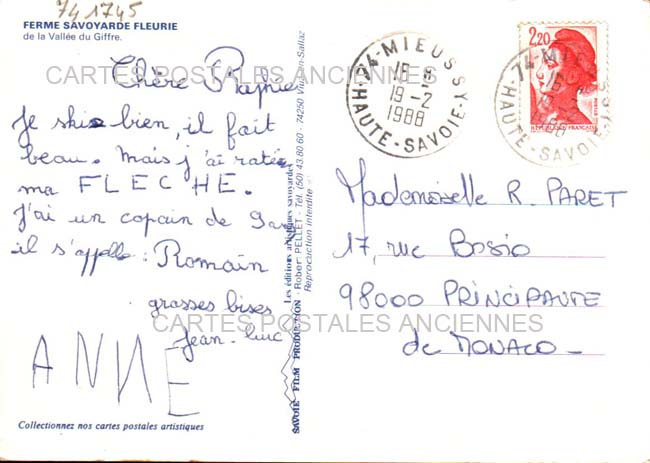 74 1745
FERME SAVOYARDE FLEURIE
de la Vallée du Giffre.
Chère
Je skie bien, il fait
beau. Mais j'ai ratée
ma FLECHE.
J'ai un copain de
il s'appelle : Romain
grosses bises
Jean-luc
ANNE
Collectionnez nos cartes postales artistiques
SAVOIE FILM PRODUCTION - Robert PELLET - Tél. (50) 43.80.60 - 74250 Viuz-en-Sallaz
Les éditions artistiques savoyardes
Reproduction interdite
74-MIEUSSY
19-2
1988
HAUTE-SAVOIE
2,20
REPUBLIQUE FRANÇAISE
74-MIEUSSY
1988
HAUTE-SAVOIE
Mademoiselle R. PARET
17, rue Bosio
98000 PRINCIPAUTE
de MONACO -
CARTES POSTALES ANCIENNES
CARTES POSTALES ANCIENNES